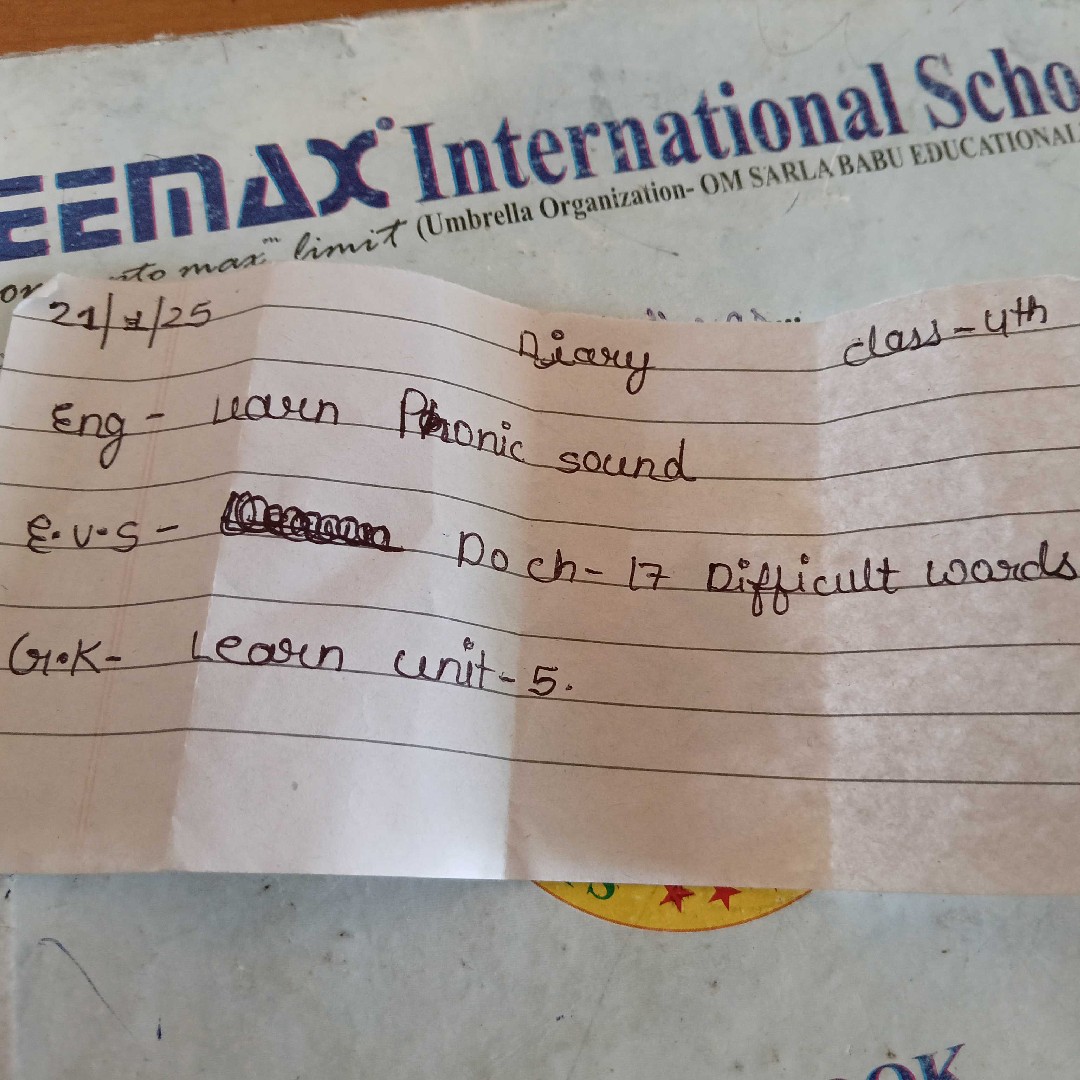 EEMAX International Scho
to max limit (Umbrella Organization- OM SARLA BABU EDUCATIONAL
21/1/25 Diary class-4th
Eng - Learn Phonic sound
E.V.S - Do ch-17 Difficult words
G.K- Learn unit-5.
OK